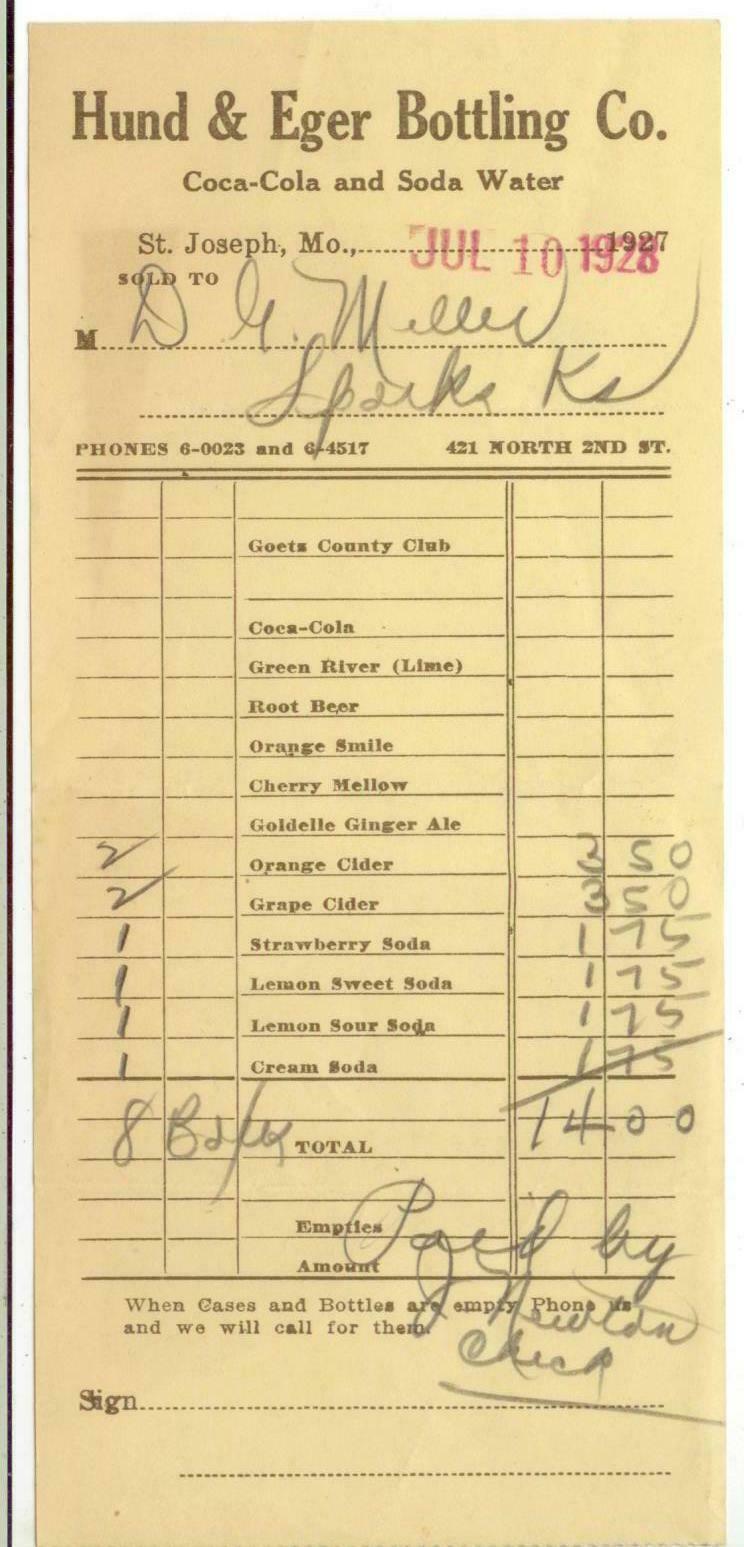 Hund & Eger Bottling Co.
Coca-Cola and Soda Water
St. Joseph, Mo., JUL 10 1928 1927
SOLD TO
M D G. Miller
Sparks Ks
PHONES 6-0023 and 6-4517 421 NORTH 2ND ST.
Goetz County Club
Coca-Cola
Green River (Lime)
Root Beer
Orange Smile
Cherry Mellow
Goldelle Ginger Ale
2 Orange Cider 3 50
2 Grape Cider 3 50
1 Strawberry Soda 1 75
1 Lemon Sweet Soda 1 75
1 Lemon Sour Soda 1 75
1 Cream Soda 1 75
8 TOTAL 14 00
Empties Paid by
Amount
When Cases and Bottles are empty Phone us
and we will call for them.
J Newton
Check
Sign